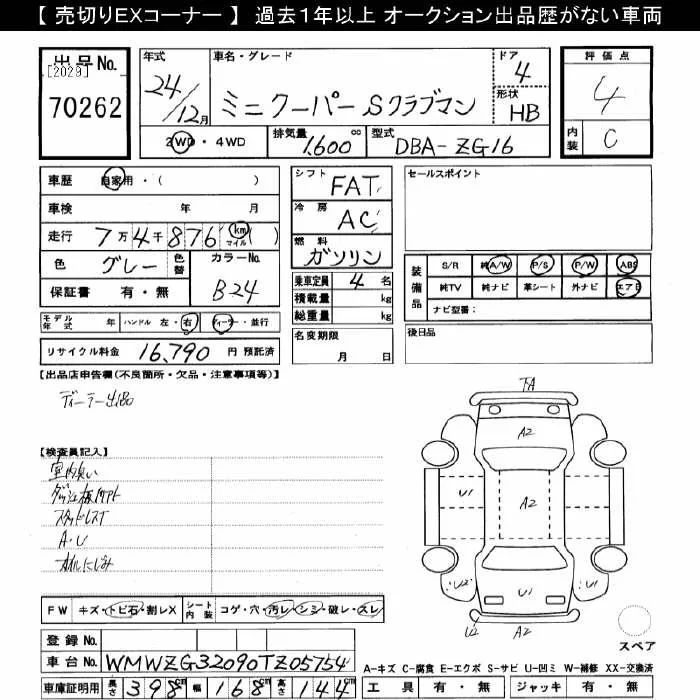 【 売切りEXコーナー 】 過去１年以上 オークション出品歴がない車両
出品No.
[2029]
70262
年式
24/12月
車名・グレード
ミニクーパー Sクラブマン
ドア
4
形状
HB
評価点
4
内装
C
2WD・4WD
排気量
1,600 cc
型式
DBA-ZG16
車歴
自家用・( )
車検 年 月
走行
7万4千876 km マイル ( )
色
グレー
色替
カラーNo.
B24
保証書 有・無
モデル年式 年 ハンドル 左・右 ディーラー・並行
リサイクル料金 16,790 円 預託済
シフト
FAT
冷房
AC
燃料
ガソリン
乗車定員 4 名
積載量 kg
総重量 kg
名変期限
月 日
セールスポイント
装備品
S/R 純A/W P/S P/W ABS
純TV 純ナビ 革シート 外ナビ エアB
ナビ型番：
後日品
【出品店申告欄(不良箇所・欠品・注意事項等)】
ディーラー出品
【検査員記入】
室内臭い
ダッシュ板
スタッドレスT
A・U
オイルにじみ
A2
U1
A2
U2
U1
U2
A2
FW キズ・トビ石・割レX
シート内装 コゲ・穴・汚レ・シミ・破レ・スレ
登録No.
車台No.
WMWZG32090TZ05754
車庫証明用 長さ 398cm 幅 168cm 高さ 144cm
スペア
A-キズ C-腐食 E-エクボ S-サビ U-凹ミ W-補修 XX-交換済
工具 有・無 ジャッキ 有・無